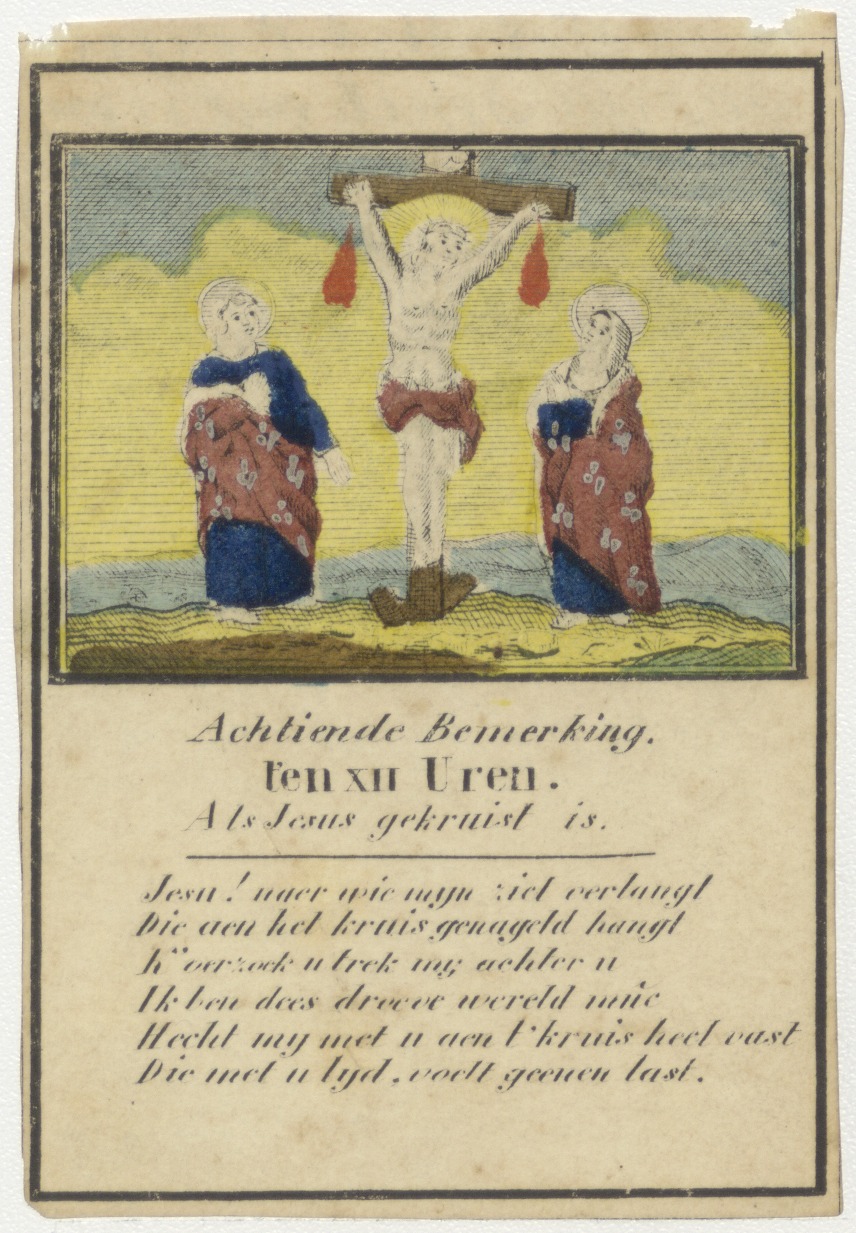 Achtiende Bemerking.
ten XII Uren.
Als Jesus gekruist is.
Jesu! naer wie myn ziel verlangt
Die aen het kruis genageld hangt
K'verzoek u trek my achter u
Ik ben dees droeve wereld muë
Hecht my met u aen t'kruis heel vast
Die met u lyd, voelt geenen last.